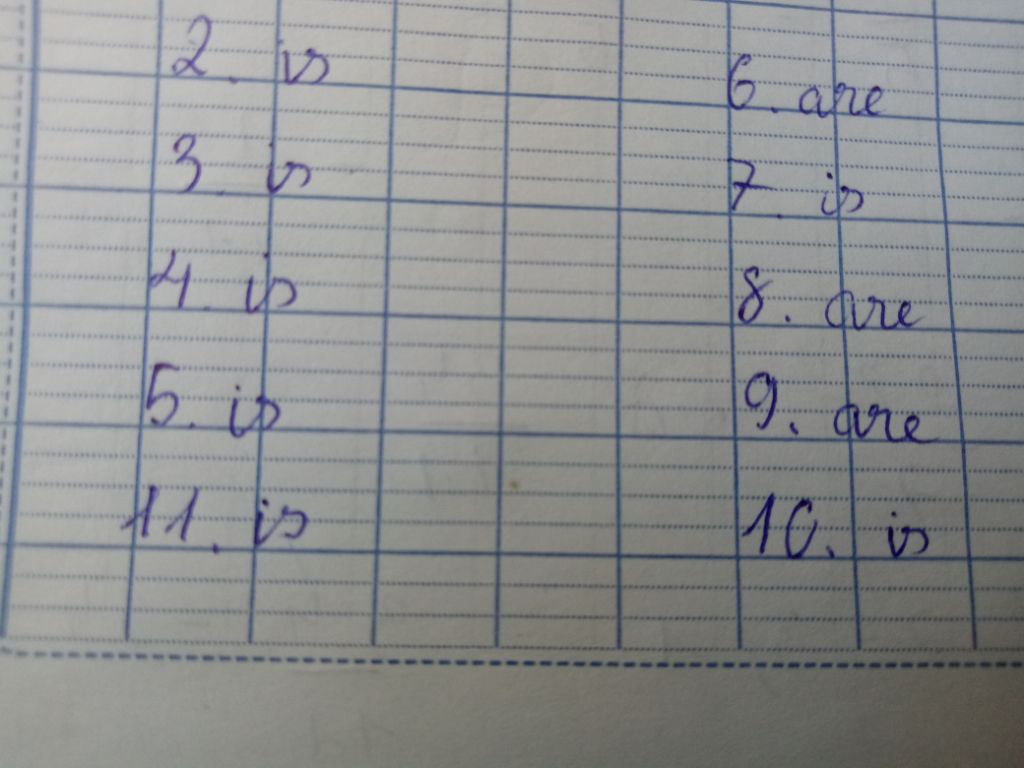 2. is
3 is
4. is
5. is
11. is
6. are
7. is
8. are
9. are
10. is